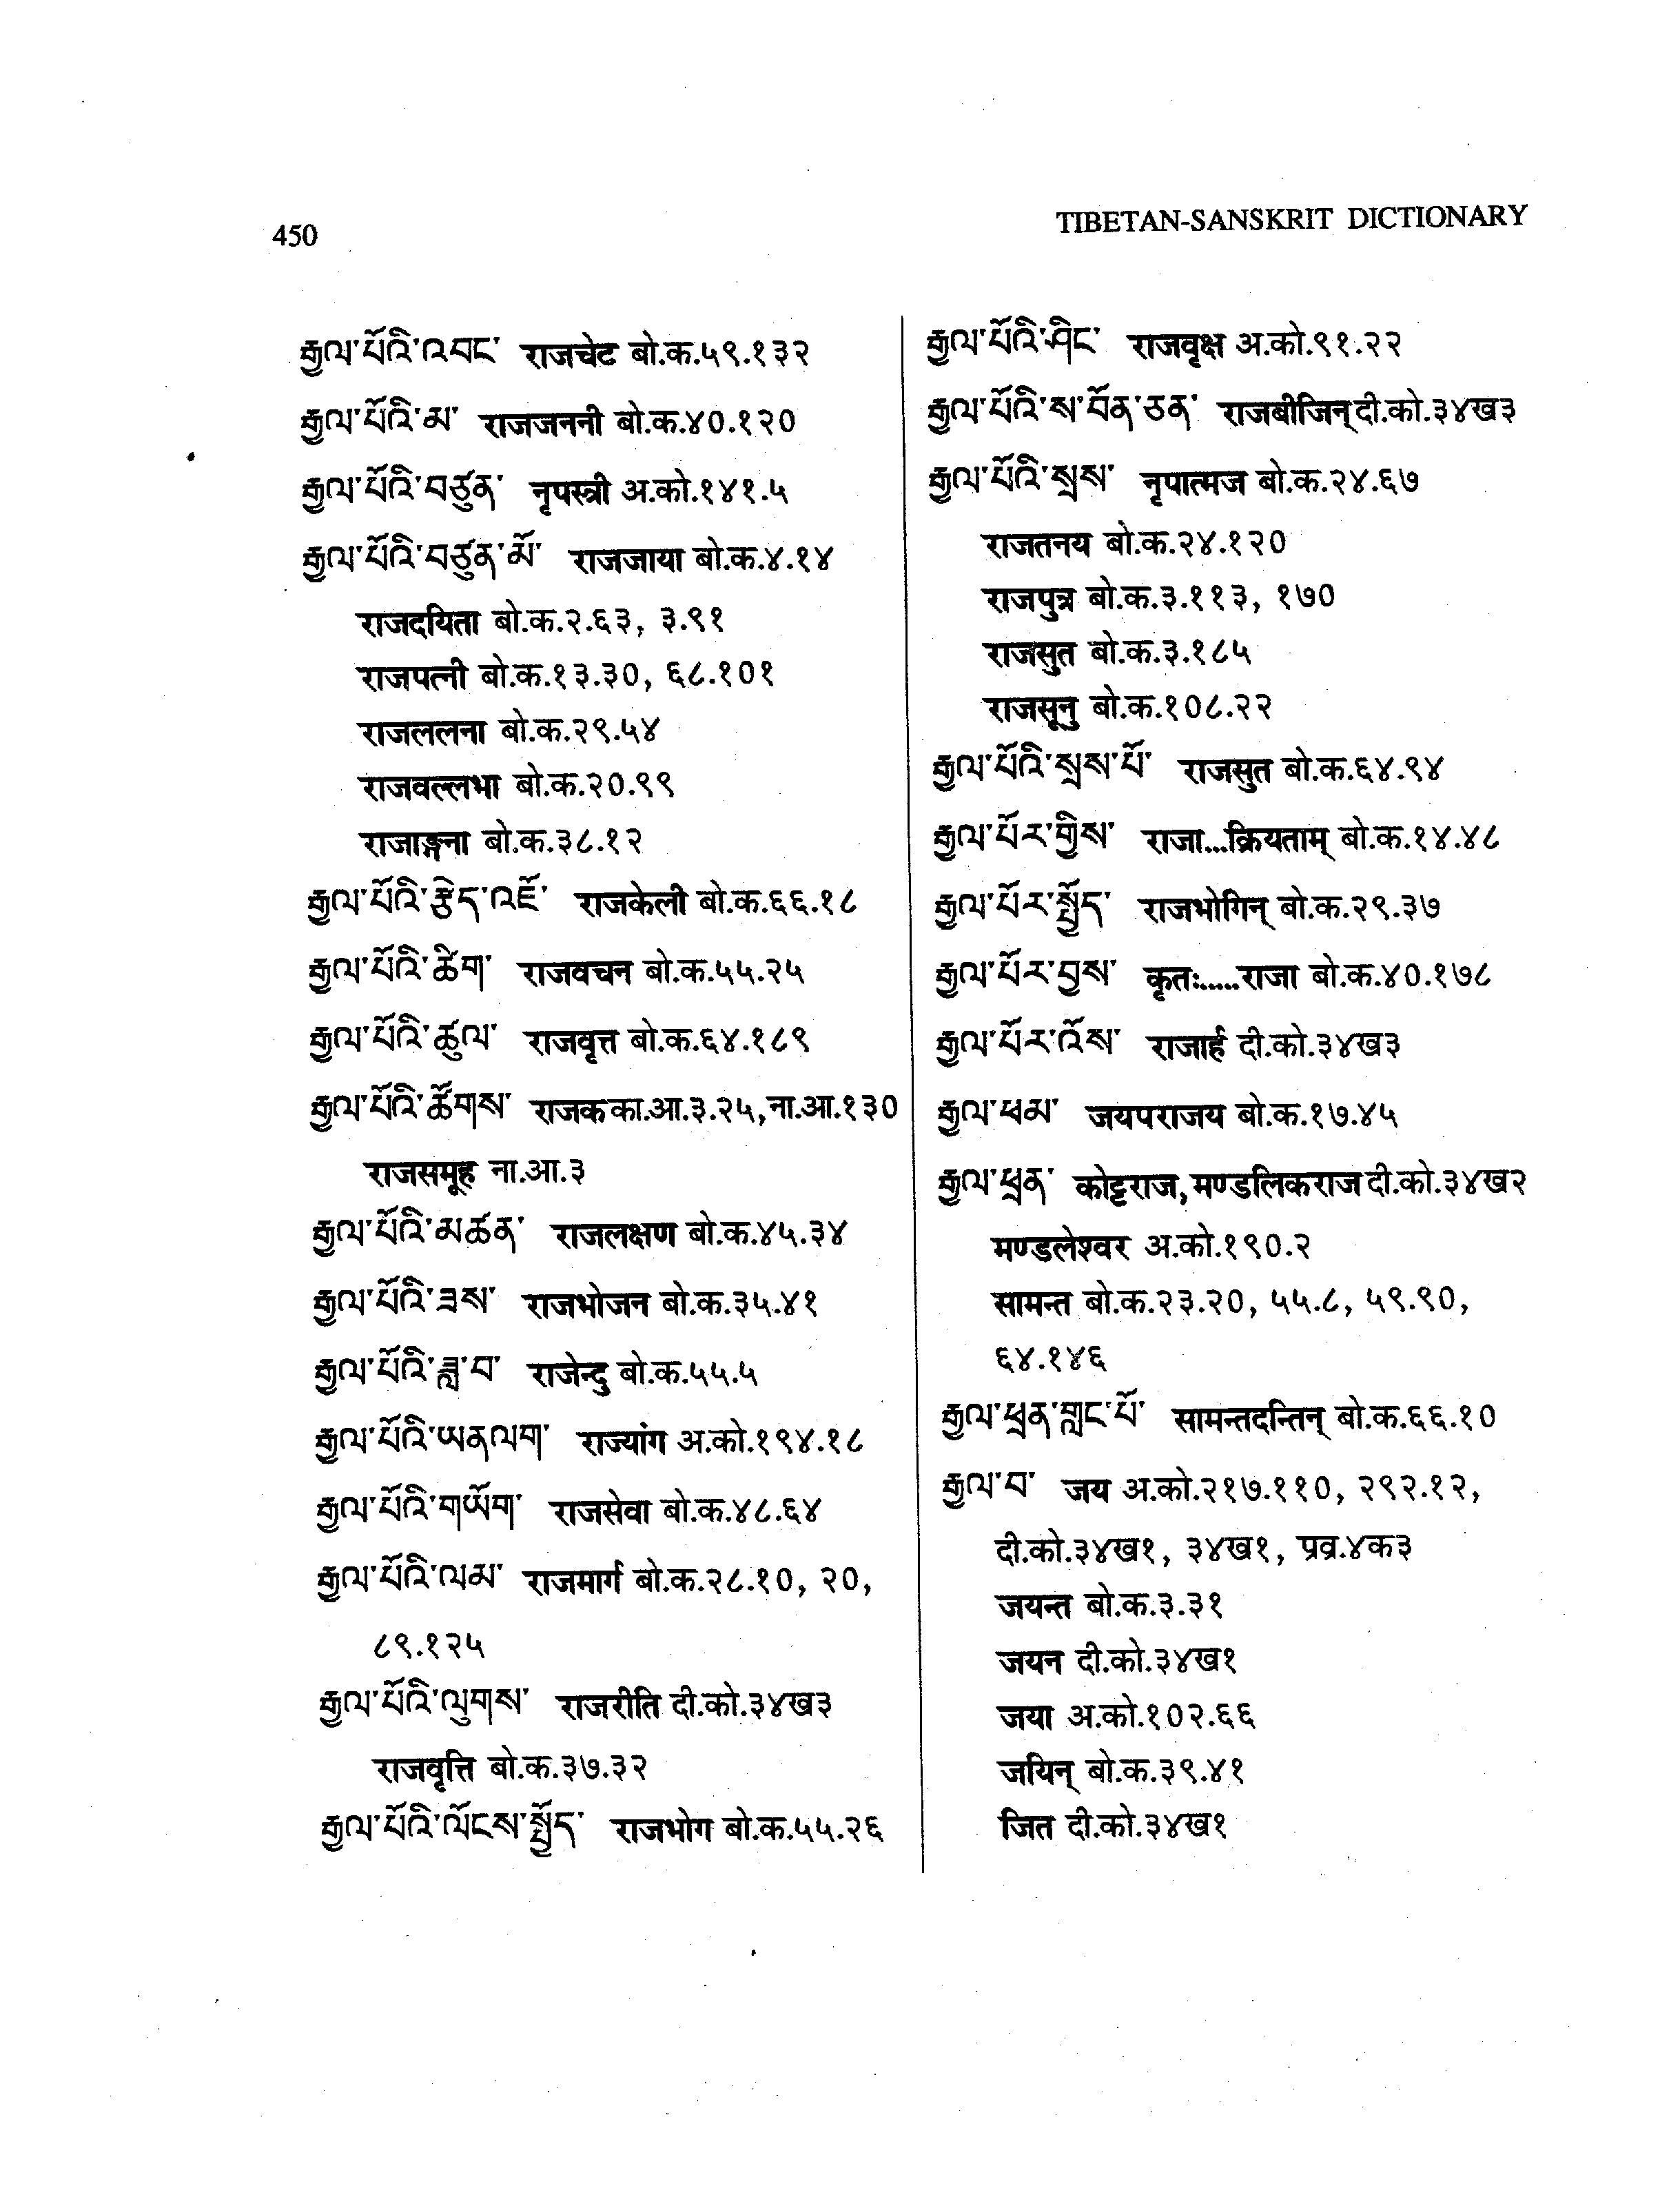 450
TIBETAN-SANSKRIT DICTIONARY
རྒྱལ་པོའི་འབང་ राजचेट बो.क.५९.१३२
རྒྱལ་པོའི་མ་ राजजननी बो.क.४०.१२०
རྒྱལ་པོའི་བཙུན་ नृपस्त्री अ.को.१४१.५
རྒྱལ་པོའི་བཙུན་མོ་ राजजाया बो.क.४.१४
राजदयिता बो.क.२.६३, ३.९१
राजपत्नी बो.क.१३.३०, ६८.१०१
राजललना बो.क.२९.५४
राजवल्लभा बो.क.२०.९९
राजाङ्गना बो.क.३८.१२
རྒྱལ་པོའི་རྩེད་འཇོ་ राजकेली बो.क.६६.१८
རྒྱལ་པོའི་ཚིག་ राजवचन बो.क.५५.२५
རྒྱལ་པོའི་ཚུལ་ राजवृत्त बो.क.६४.१८९
རྒྱལ་པོའི་ཚོགས་ राजक का.आ.३.२५, ना.आ.१३०
राजसमूह ना.आ.३
རྒྱལ་པོའི་མཚན་ राजलक्षण बो.क.४५.३४
རྒྱལ་པོའི་ཟས་ राजभोजन बो.क.३५.४१
རྒྱལ་པོའི་ཟླ་བ་ राजेन्दु बो.क.५५.५
རྒྱལ་པོའི་ཡནལག་ राज्यांग अ.को.१९४.१८
རྒྱལ་པོའི་གཡོག་ राजसेवा बो.क.४८.६४
རྒྱལ་པོའི་ལམ་ राजमार्ग बो.क.२८.१०, २०,
८९.१२५
རྒྱལ་པོའི་ལུགས་ राजरीति दी.को.३४ख३
राजवृत्ति बो.क.३७.३२
རྒྱལ་པོའི་ལོངས་སྤྱོད་ राजभोग बो.क.५५.२६
རྒྱལ་པོའི་ཤིང་ राजवृक्ष अ.को.९१.२२
རྒྱལ་པོའི་ས་བོན་ཅན་ राजबीजिन् दी.को.३४ख३
རྒྱལ་པོའི་སྲས་ नृपात्मज बो.क.२४.६७
राजतनय बो.क.२४.१२०
राजपुत्र बो.क.३.११३, १७०
राजसुत बो.क.३.१८५
राजसूनु बो.क.१०८.२२
རྒྱལ་པོའི་སྲས་པོ་ राजसुत बो.क.६४.९४
རྒྱལ་པོར་གྱིས་ राजा...क्रियताम् बो.क.१४.४८
རྒྱལ་པོར་སྤྱོད་ राजभोगिन् बो.क.२९.३७
རྒྱལ་པོར་བྱས་ कृतः.....राजा बो.क.४०.१७८
རྒྱལ་པོར་འོས་ राजार्ह दी.को.३४ख३
རྒྱལ་ཕམ་ जयपराजय बो.क.१७.४५
རྒྱལ་ཕྲན་ कोट्टराज, मण्डलिकराज दी.को.३४ख२
मण्डलेश्वर अ.को.१९०.२
सामन्त बो.क.२३.२०, ५५.८, ५९.९०,
६४.१४६
རྒྱལ་ཕྲན་གླང་པོ་ सामन्तदन्तिन् बो.क.६६.१०
རྒྱལ་བ་ जय अ.को.२१७.११०, २९२.१२,
दी.को.३४ख१, ३४ख१, प्रव्र.४क३
जयन्त बो.क.३.३१
जयन दी.को.३४ख१
जया अ.को.१०२.६६
जयिन् बो.क.३९.४१
जित दी.को.३४ख१